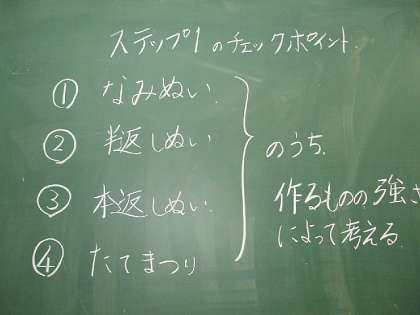 ステップ1のチェックポイント
① なみぬい
② 半返しぬい
③ 本返しぬい
④ たてまつり
のうち.
作るものの強さ
によって考える